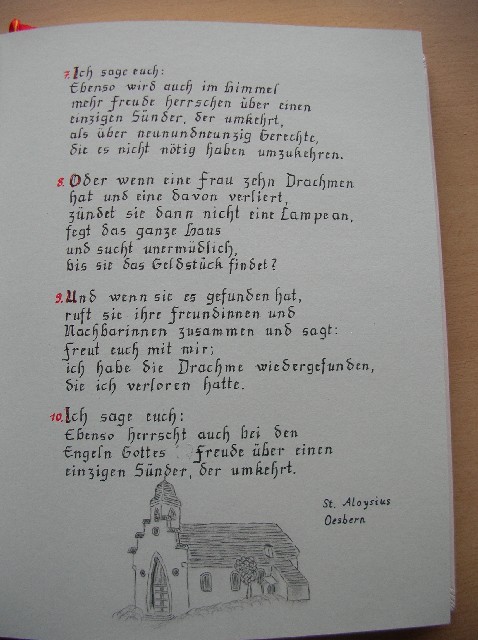 7. Ich sage euch:
Ebenso wird auch im Himmel
mehr Freude herrschen über einen
einzigen Sünder, der umkehrt,
als über neunundneunzig Gerechte,
die es nicht nötig haben umzukehren.
8. Oder wenn eine Frau zehn Drachmen
hat und eine davon verliert,
zündet sie dann nicht eine Lampe an,
fegt das ganze Haus
und sucht unermüdlich,
bis sie das Geldstück findet?
9. Und wenn sie es gefunden hat,
ruft sie ihre Freundinnen und
Nachbarinnen zusammen und sagt:
Freut euch mit mir;
ich habe die Drachme wiedergefunden,
die ich verloren hatte.
10. Ich sage euch:
Ebenso herrscht auch bei den
Engeln Gottes Freude über einen
einzigen Sünder, der umkehrt.
St. Aloysius
Oesbern